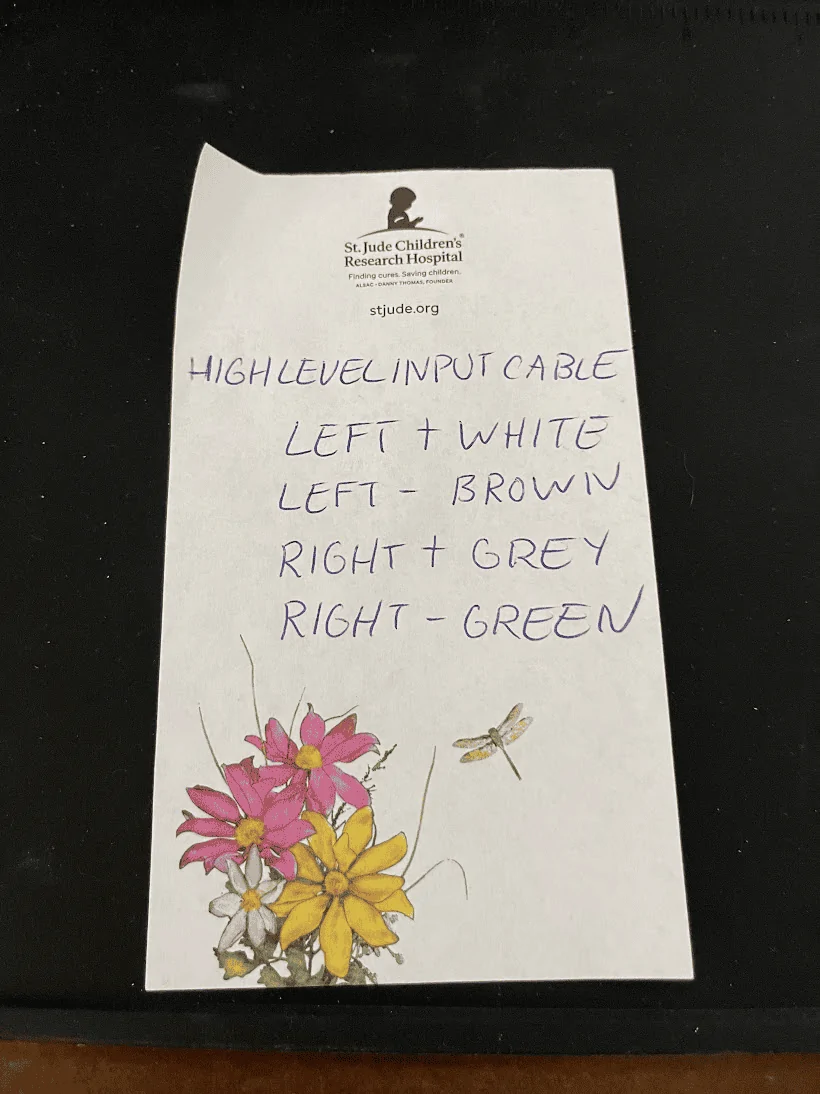 St. Jude Children's®
Research Hospital
Finding cures. Saving children.
ALSAC • DANNY THOMAS, FOUNDER
stjude.org
HIGH LEVEL INPUT CABLE
LEFT + WHITE
LEFT - BROWN
RIGHT + GREY
RIGHT - GREEN